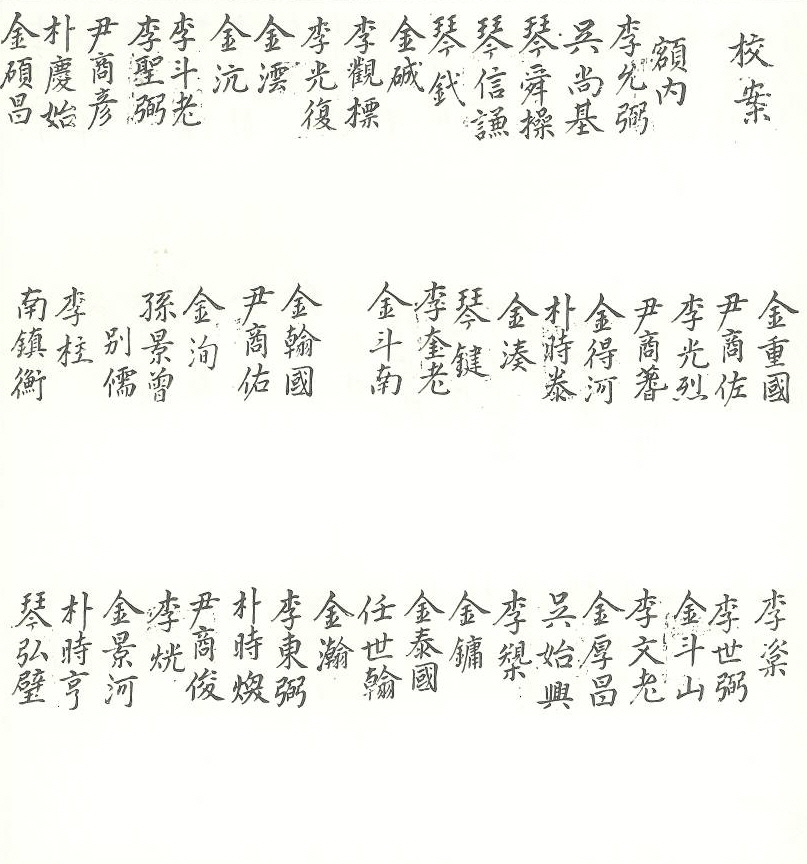 校案
額內
李允弼
吳尚基
琴舜操
琴信謙
琴釴
金碱
李觀標
李光復
金澐
金沆
李斗老
李聖弼
尹商彥
朴慶始
金碩昌
金重國
尹商佐
李光烈
尹商蓍
金得河
朴時泰
金湊
琴鍵
李奎老
金斗南
金翰國
尹商佑
金洵
孫景曾
別儒
李柱
南鎮衡
李
李世弼
金斗山
李文老
金厚昌
吳始興
李槼
金鏞
金泰國
任世翰
金瀚
李東弼
朴時煥
尹商俊
李烍
金景河
朴時亨
琴弘壁